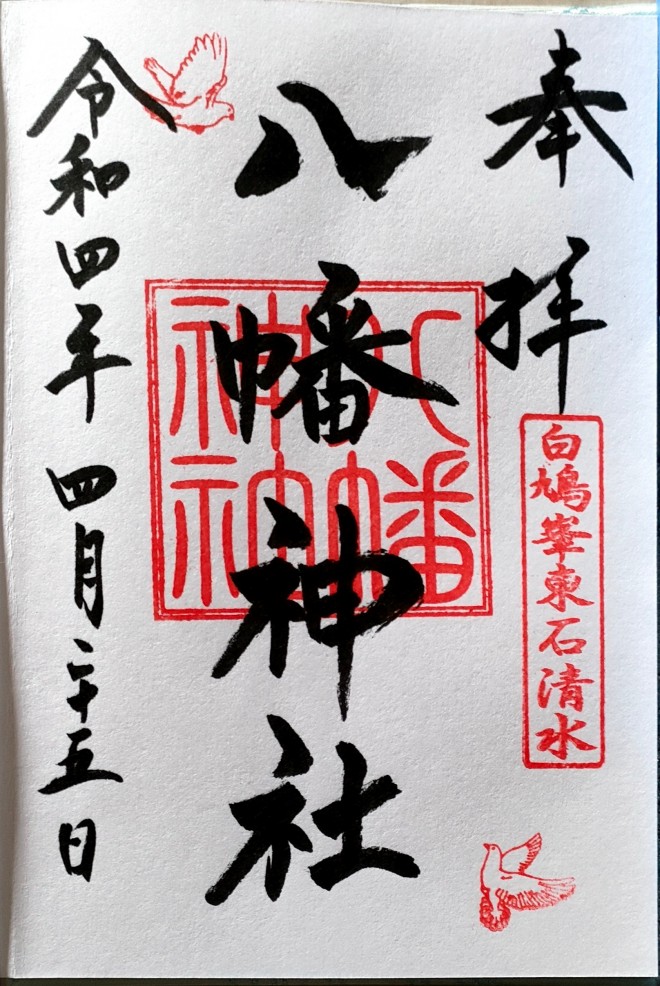 奉拝
白鳩峯東石清水
八幡神社
八幡
神社
令和四年 四月二十五日